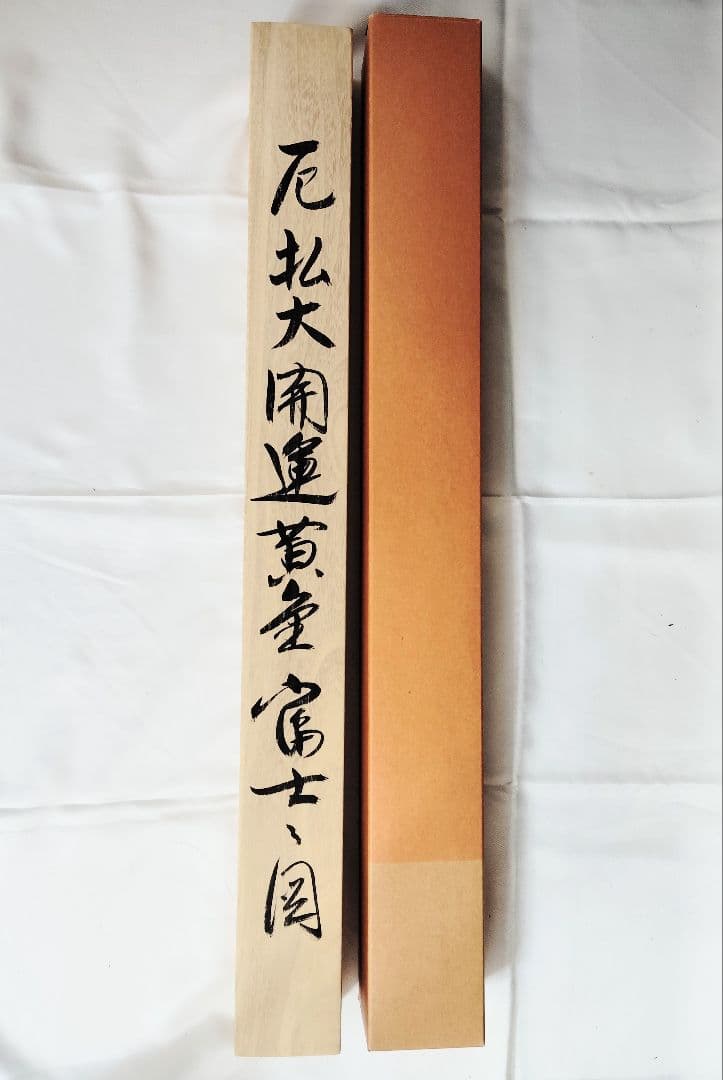 厄払大開運黄金富士々図